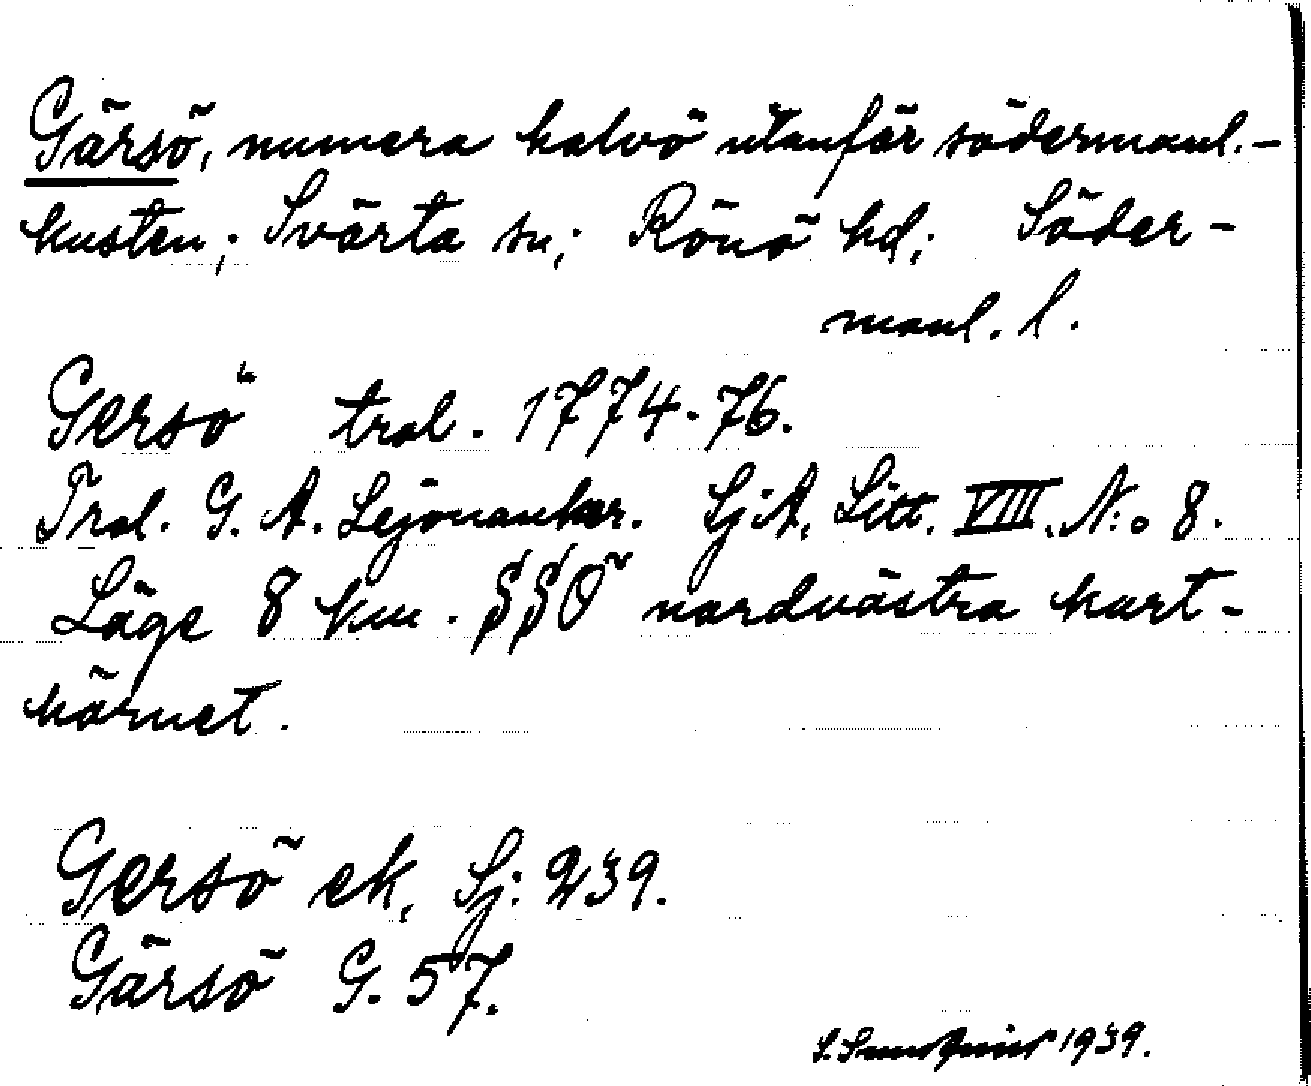 Gärsö, numera halvö utanför södermanl.-
kusten; Svärta sn; Rönö hd; Söder-
manl. l.
Gersö tral. 1774-76.
Tral. G. A. Lejonanker. SjA. Litt. VIII. N:o 8.
Läge 8 km. SSO nordvästra kart-
hörnet.
Gersö ek. Sj: 239.
Gärsö G. 57.
1939.